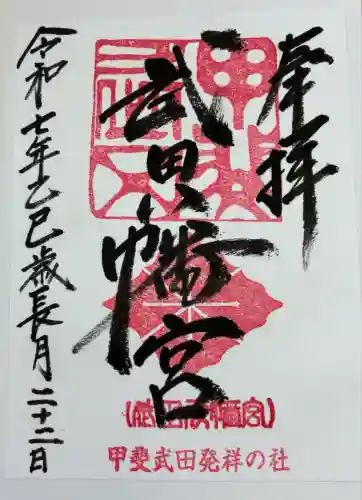 奉拝
武田八幡宮
令和七年乙巳歳長月二十二日
(武田八幡宮)
甲斐武田発祥の社